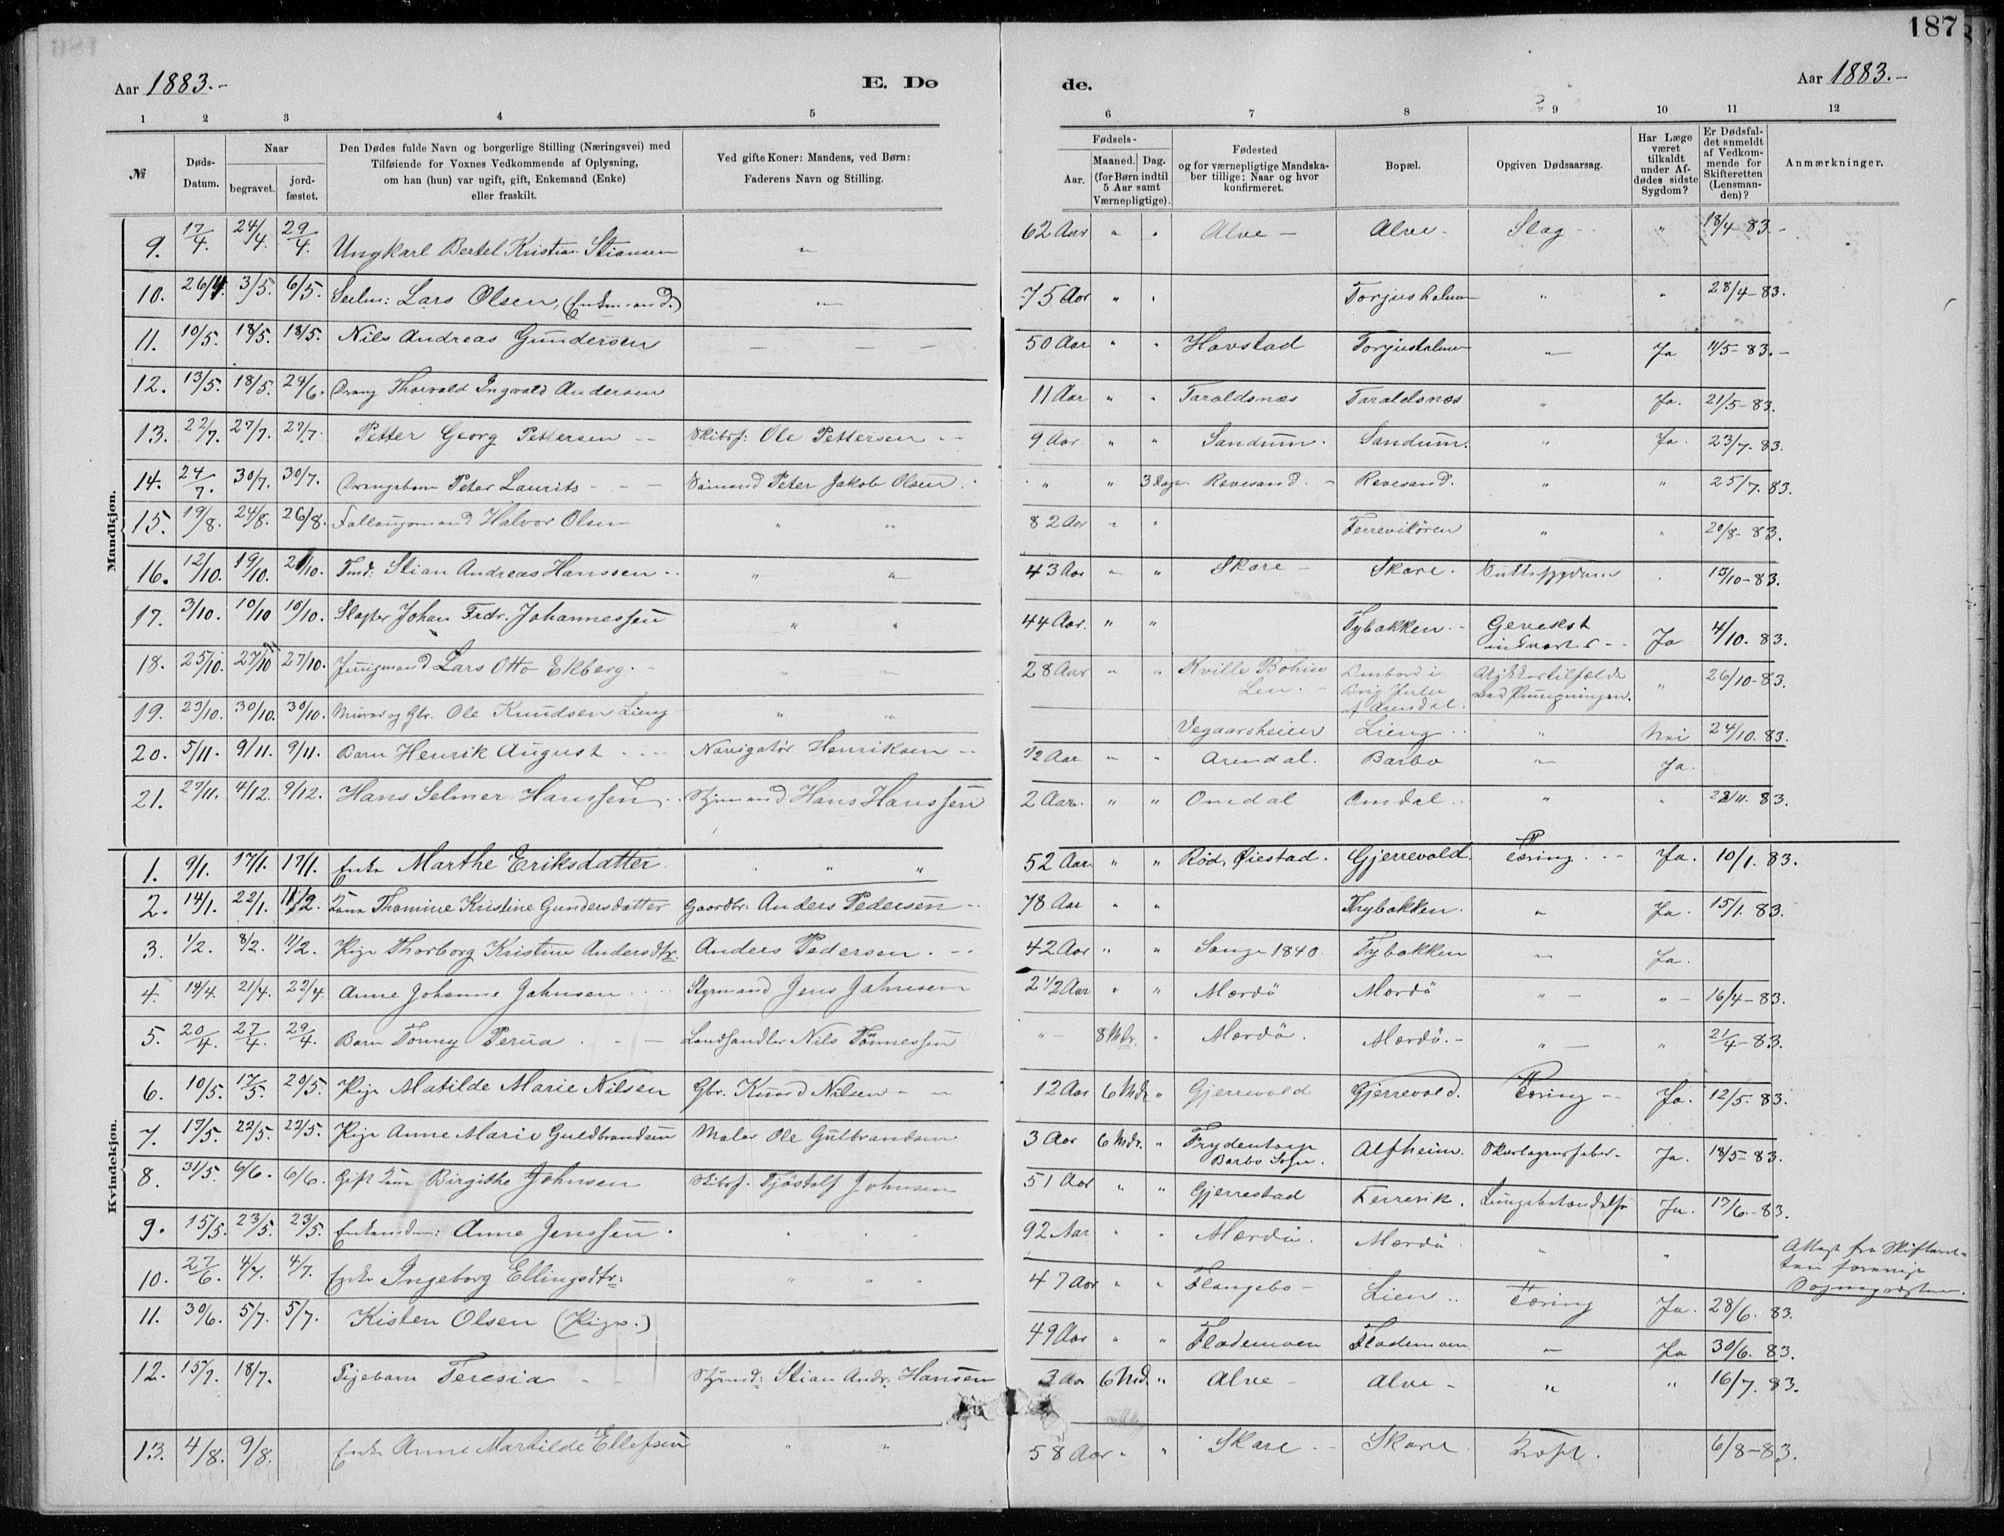 187
Aar 1883.-
E. Dø
de.
Aar 1883.-
1 2 3 4 5 6 7 8 9 10 11 12
№
Døds-Datum.
Naar
begravet.
jord-fæstet.
Den Dødes fulde Navn og borgerlige Stilling (Næringsvei) med
Tilføiende for Voxnes Vedkommende af Oplysning,
om han (hun) var ugift, gift, Enkemand (Enke)
eller fraskilt.
Ved gifte Koner: Mandens, ved Børn:
Faderens Navn og Stilling.
Fødsels-
Aar.
Maaned. Dag.
(for Børn indtil
5 Aar samt
Værnepligtige).
Fødested
og for værnepligtige Mandska-
ber tillige: Naar og hvor
konfirmeret.
Bopæl.
Opgiven Dødsaarsag.
Har Læge
været
tilkaldt
under Af-
dødes sidste
Sygdom?
Er Dødsfal-
det anmeldt
af Vedkom-
mende for
Skifteretten
(Lensman-
den)?
Anmærkninger.
Mandkjøn.
9. 17/4. 24/4. 29/4. Ungkarl Bertel Kristian Stiansen " 62 Aar " " Alve - Alve. Slag " 18/4-83.-
10. 26/4. 3/5. 6/5. Lars Olsen, (Enkemand.) " 75 Aar " " Torjusholmen " " 28/4-83.
11. 10/5. 18/5. 18/5. Nils Andreas Gundersen - - - 50 Aar " " Havstad Torjusholmen " Ja 11/5-83.-
12. 13/5. 18/5. 24/6. Dreng Thorvald Ingvald Andersen 11 Aar " " Taraldsnæs Taraldsnæs " Ja. 21/5-83.
13. 22/7. 27/7. 27/7. Petter Georg Pettersen Skibsf: Ole Pettersen 9 Aar. " " Sandum. Sandum. " Ja. 23/7-83.
14. 24/7. 30/7. 30/7. Drengebarn Peter Laurits Peter Jakob Olsen. " " 3 Dage. Revesand. - Revesand. " " 25/7.83.
15. 19/8. 24/8. 26/8. Halvor Olsen " " 82 Aar " " " " 20/8-83.
16. 12/10. 19/10. 21/10. Stian Andreas Hanssen " " 43 Aar " " Skare - Skare. 15/10-83.
17. 3/10. 10/10 10/10. Johan Fredr. Johannessen " " 44 Aar. " " Tybakken. - Gevekst
Ja 4/10.83.
18. 25/10. 27/10 27/10. Jungmand Lars Otto Ekberg. - " " 28 Aar " " Kville Bohus
Len. - Ombord i
Brig
af Arendal. Ulykkestilfælde
" 26/10-83.
19. 23/10. 30/10. 30/10. Murer og Gbr. Ole Knudsen Lieng " " Vegaarsheien Lieng " Nei 24/10.83.
20. 5/11. 9/11. 9/11. Barn Henrik August Navigatør Henriksen 1/2 Aar " " Arendal. Barbo " Ja.
21. 27/11. 4/12. 9/12. Hans Selmer Hanssen Styrmand Hans Hanssen 2 Aar. " " Omdal Omdal " " 28/11.83.
Kvindekjøn.
1. 9/1. 17/1. 17/1. Enke Marthe Eriksdatter " " 52 Aar " " Rød, Øiestad. Gjerrevold. Tæring Ja. 10/1.83.
2. 14/1. 22/1. 11/2. Kone Thomine Kristine Gundersdatter Gaardbr. Anders Pedersen 78 Aar " " Trybakken. " Ja. 15/1.83.
3. 1/2. 8/2. 11/2. Pige Thorborg Kristine Andersdtr. Anders Pedersen. 42 Aar " " Songe 1840. Tybakken " Ja.
4. 14/4. 21/4. 22/4. Anne Johanne Jahnsen Styrmand Jens Jahnsen 2 1/2 Aar " " Mærdö Mærdö " - " - 16/4-83.
5. 20/4. 27/4. 29/4. Barn Tonny Landhandler Nils Tönnessen " - 8 Mdr. " Mærdö. Mærdö. - " - " 21/4-83.
6. 10/5. 17/5. 20/5. Pige Matilde Marie Nilsen Gbr. Knud Nilsen 12 Aar 6 Mdr " Gjerrevold Gjerrevold. Tæring Ja. 12/5-83.
7. 17/5. 22/5. 22/5. Pige Anne Marie Guldbrandsen Maler Ole Gulbrandsen 3 Aar 6 Mdr. "
Barbo Sogn. Alfheim. Skarlagensfeber. Ja. 18/5-83.
8. 31/5. 6/6. 6/6. Gift Kone Birgithe Johnsen Skibsf. Tjöstolf Johnsen 51 Aar " " Gjerrestad Terrevik. Lungebetændelse Ja. 17/6-83.
9. 15/5. 23/5. 23/5. Anne Jenssen. " " 92 Aar " " Mærdö. Mærdö. " " Attest fra
10. 27/6. 4/7. 4/7. Enke Ingeborg Ellingsdtr: " " 47 Aar " " Flangebo - Lien Tæring Ja. 28/6.83.
11. 30/6. 5/7. 5/7. Kisten Olsen (Pige.) 49 Aar " " Flademoen Flademoen " Ja 30/6.83.
12. 15/7. 18/7. Pigebarn Teresia Styrmd: Stian Andr. Hansen 3 Aar 6 Md. " Alve - Alve - " " 16/7.83.
13. 4/8. 9/8. Enke Anne Martilde Ellefsen " " 58 Aar " " Skare Skare 6/8-83.